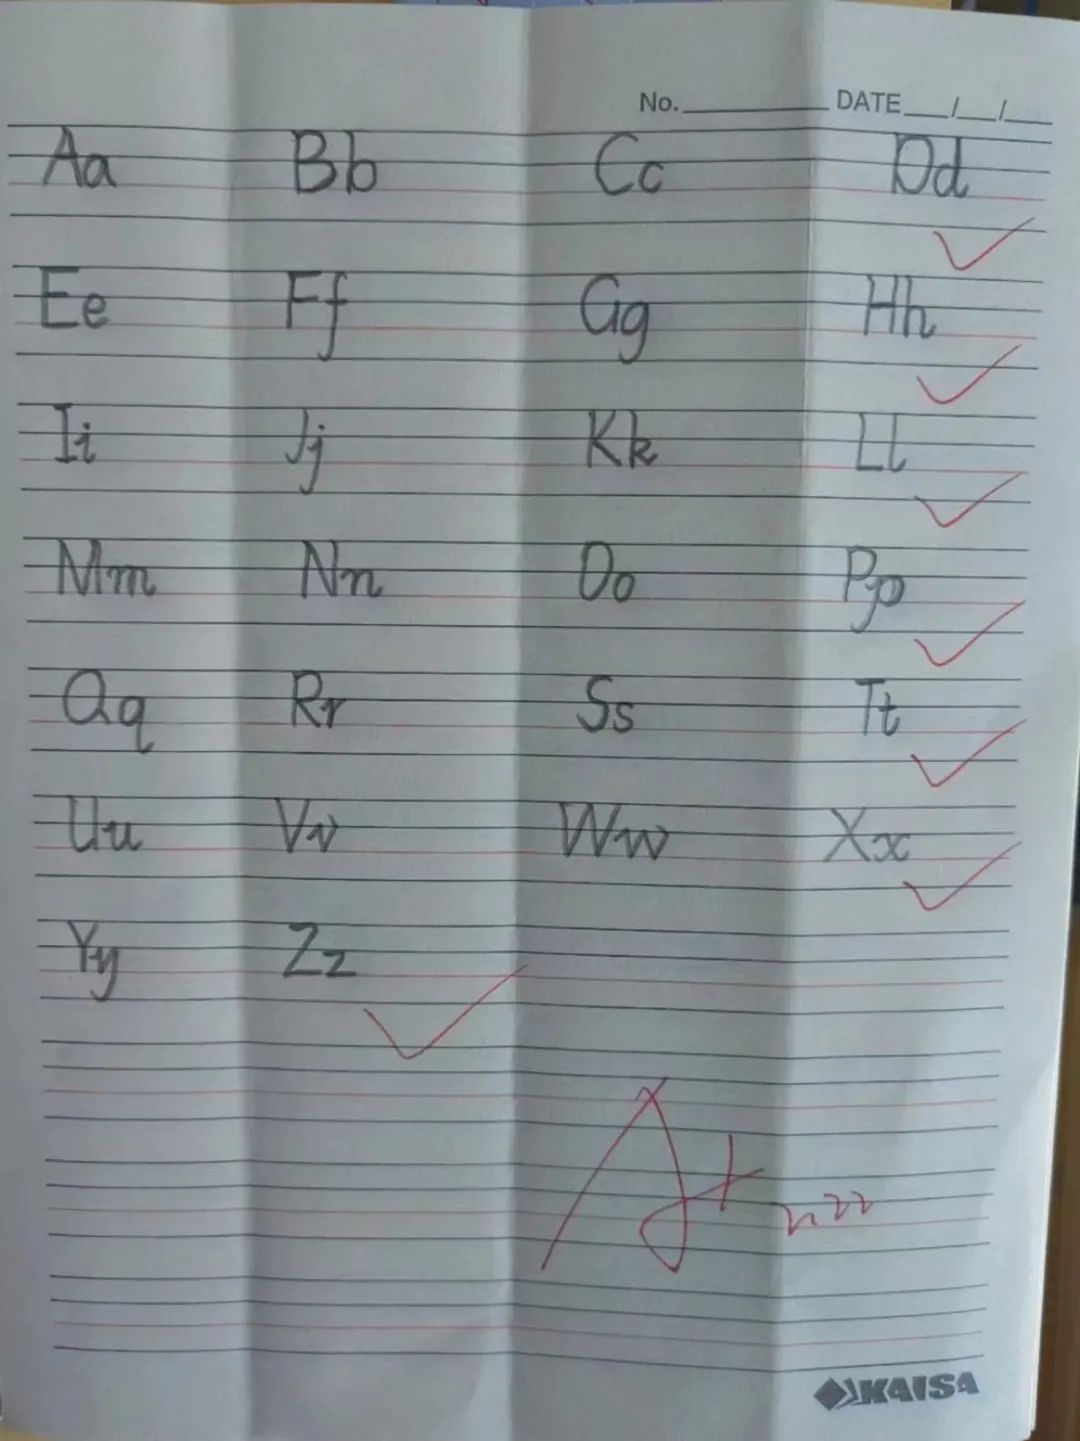 No. DATE / /
Aa Bb Cc Dd
Ee Ff Gg Hh
Ii Jj Kk Ll
Mm Nn Oo Pp
Qq Rr Ss Tt
Uu Vv Ww Xx
Yy Zz
A+
KAISA